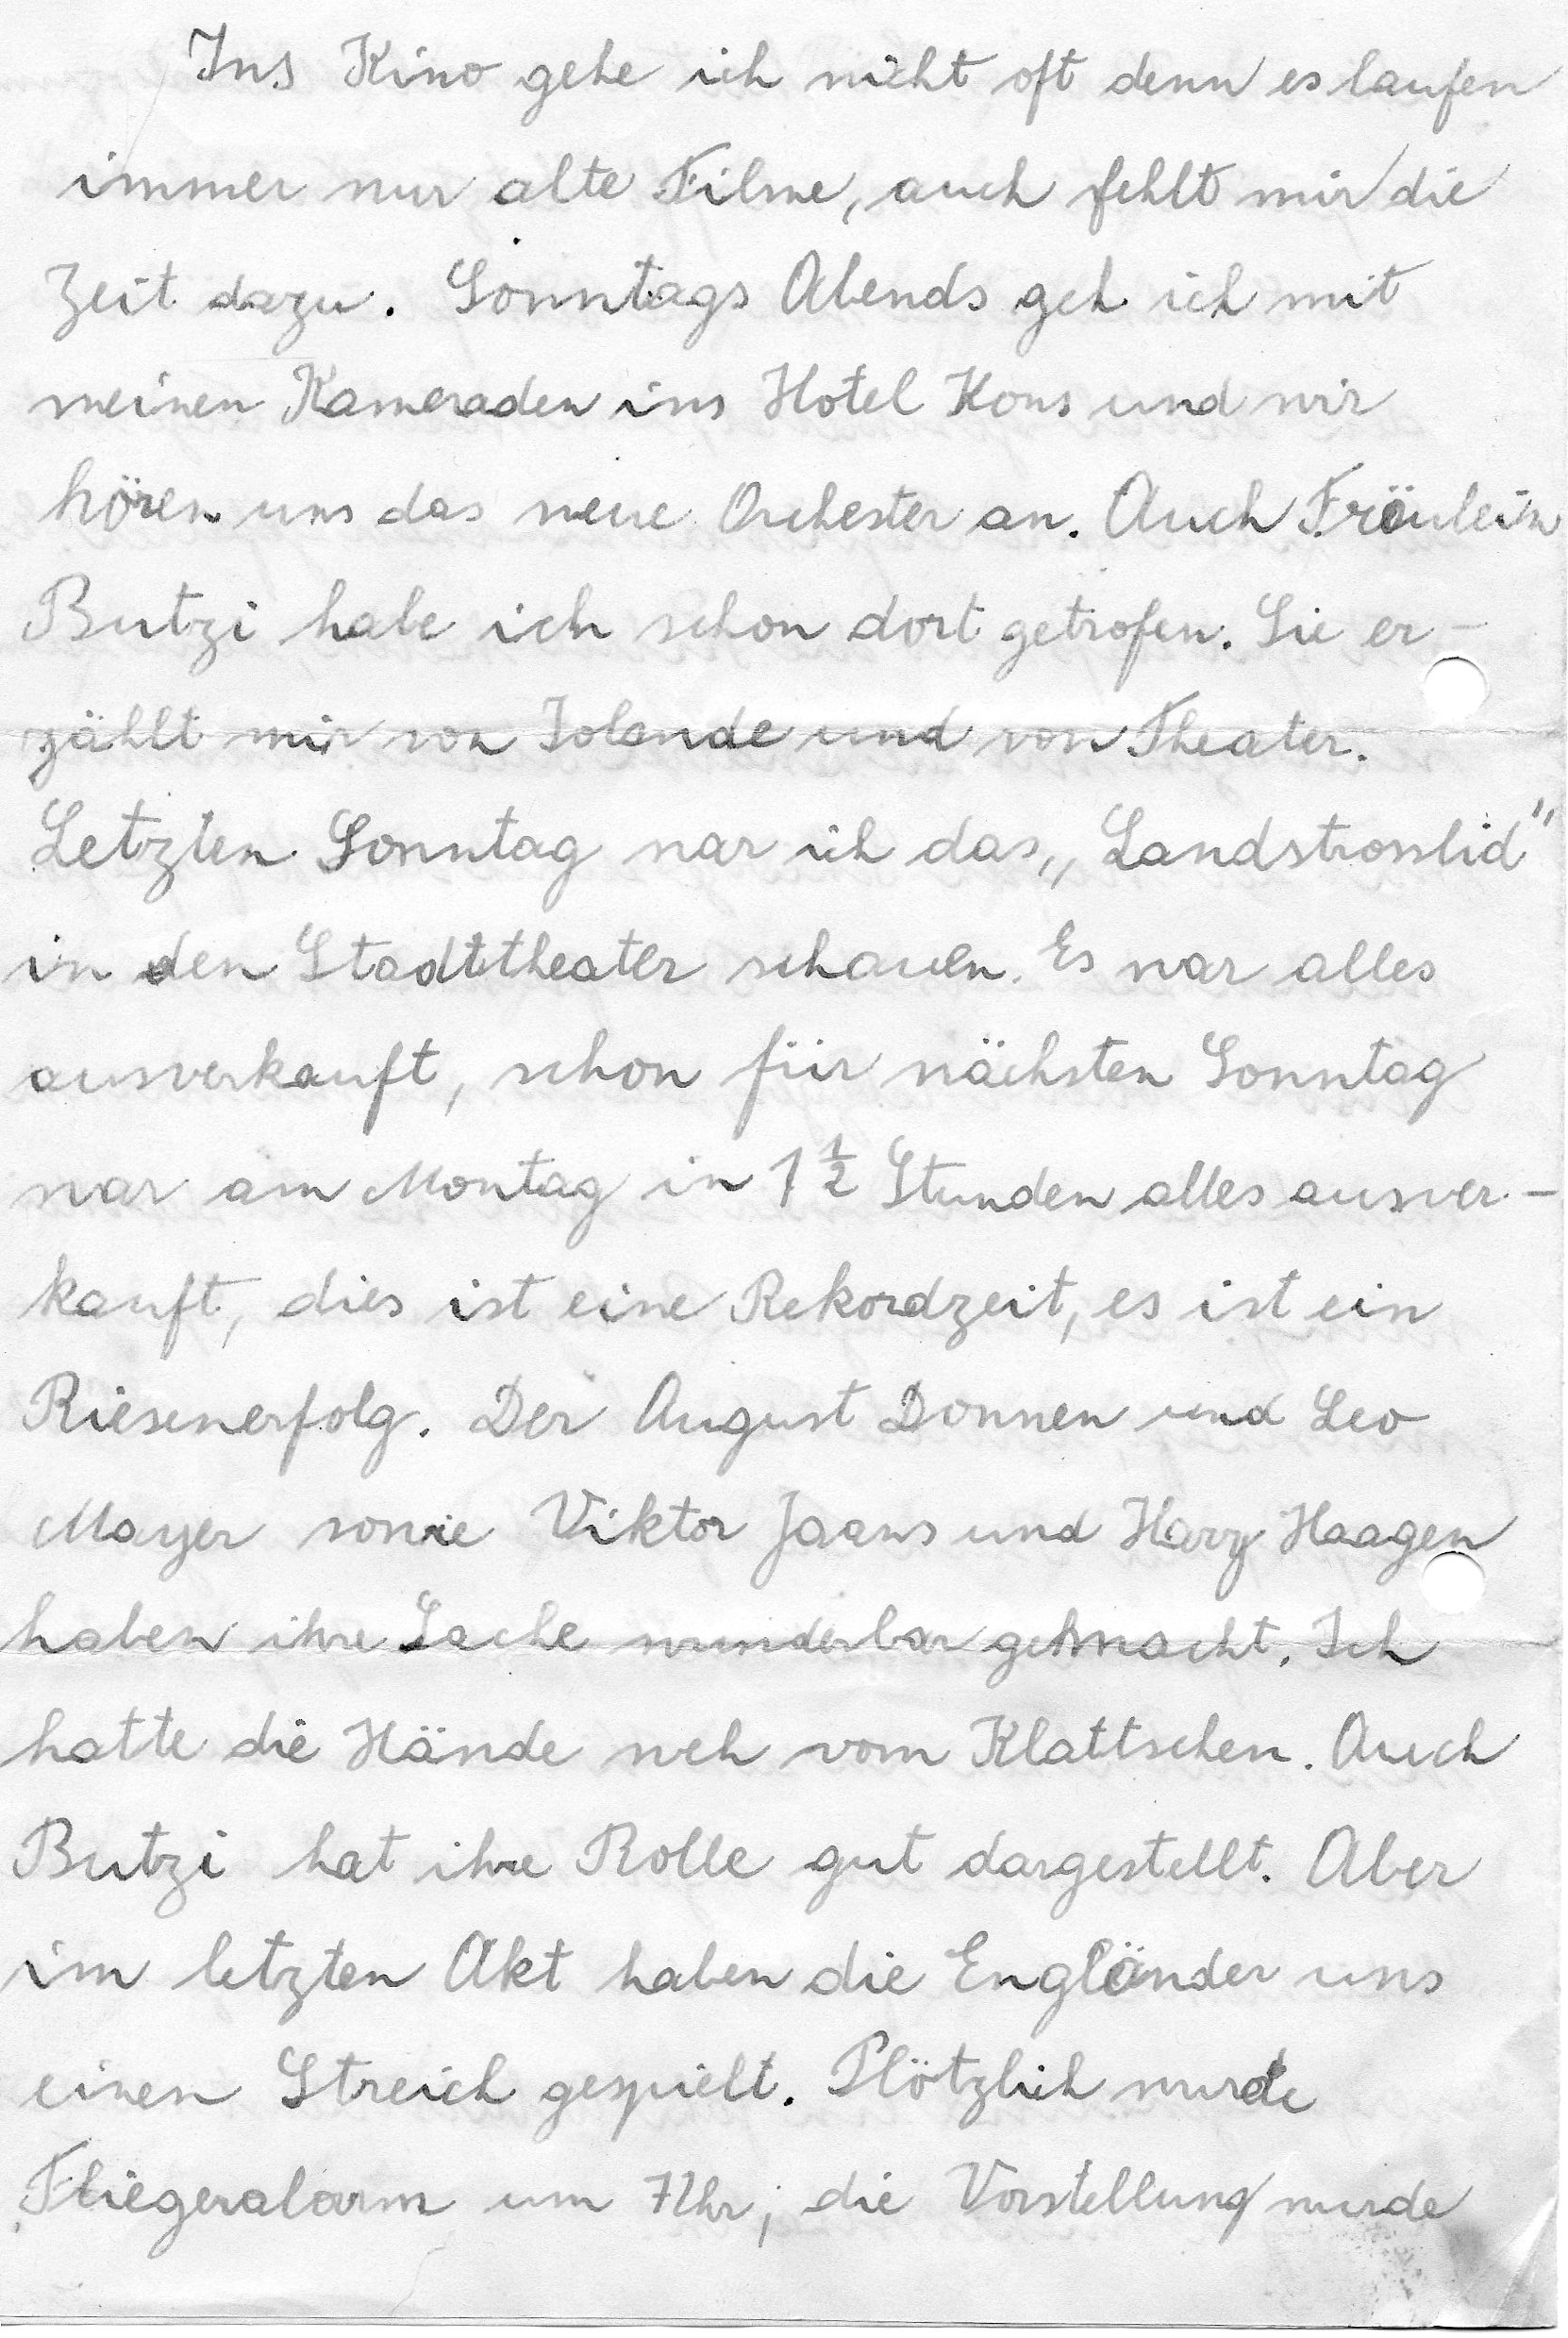 Ins Kino gehe ich nicht oft denn es laufen
immer nur alte Filme, auch fehlt mir die
Zeit dazu. Sonntags Abends geh ich mit
meinen Kameraden ins Hotel Kons und wir
hören uns das neue Orchester an. Auch Fräulein
Butzi habe ich schon dort getrofen. Sie er-
zählt mir von Iolende und von Theater.
Letzten Sonntag war ich das „Landstrosslid"
in den Stadttheater schauen. Es war alles
ausverkauft, schon für nächsten Sonntag
war am Montag in 1 1/2 Stunden alles ausver-
kauft, dies ist eine Rekordzeit, es ist ein
Riesenerfolg. Der August Donnen und Leo
Mayer sowie Viktor Jaans und Harry Haagen
haben ihre Sache wunderbar gemacht. Ich
hatte die Hände weh vom Klattschen. Auch
Butzi hat ihre Rolle gut dargestellt. Aber
im letzten Akt haben die Engländer uns
einen Streich gespielt. Plötzlich wurde
Fliegeralarm um 7 Uhr, die Vorstellung wurde